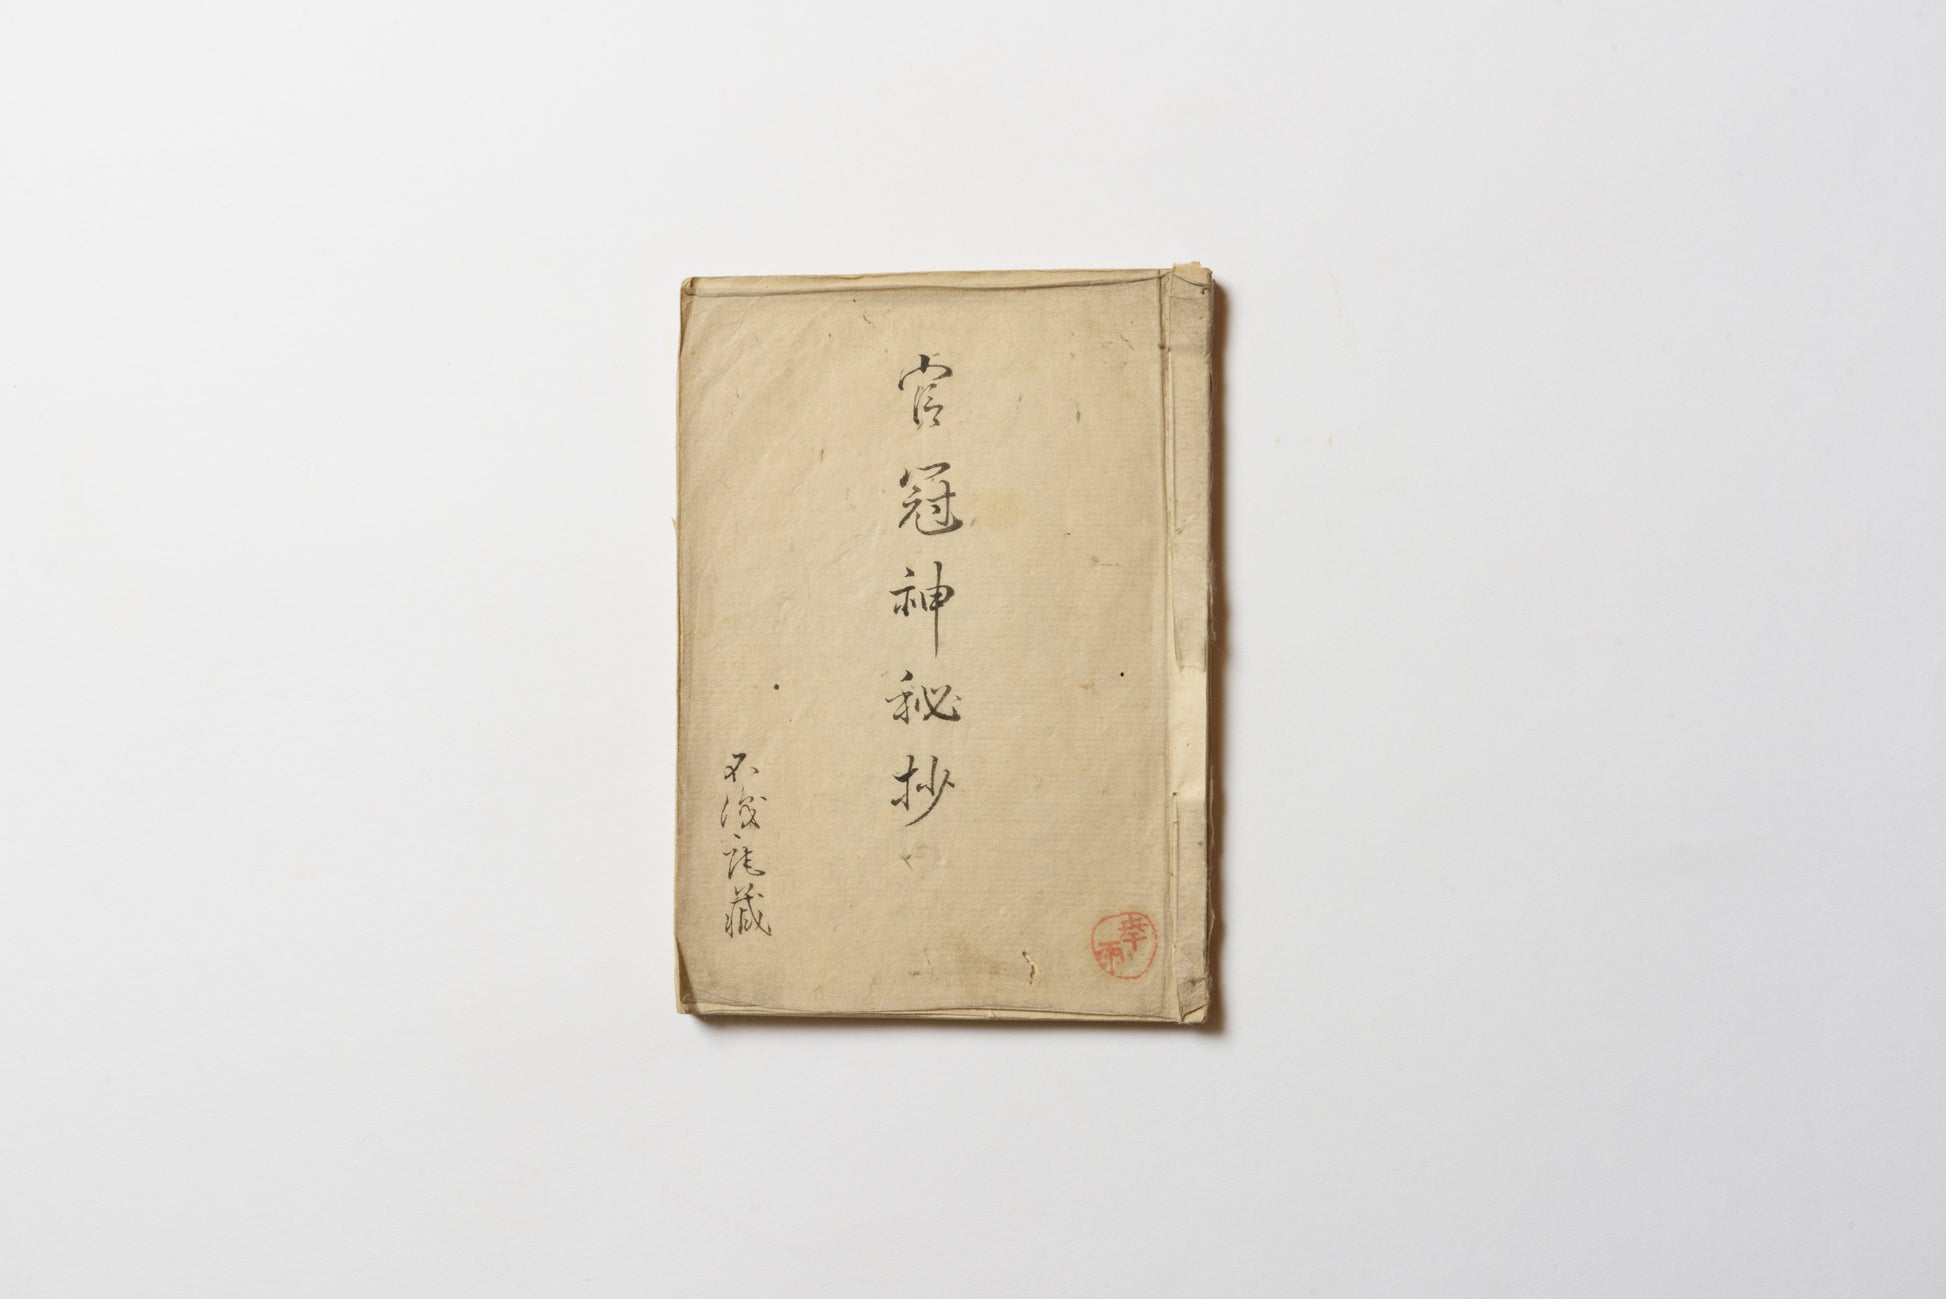 官冠神秘抄
不俊庵藏
孝雨